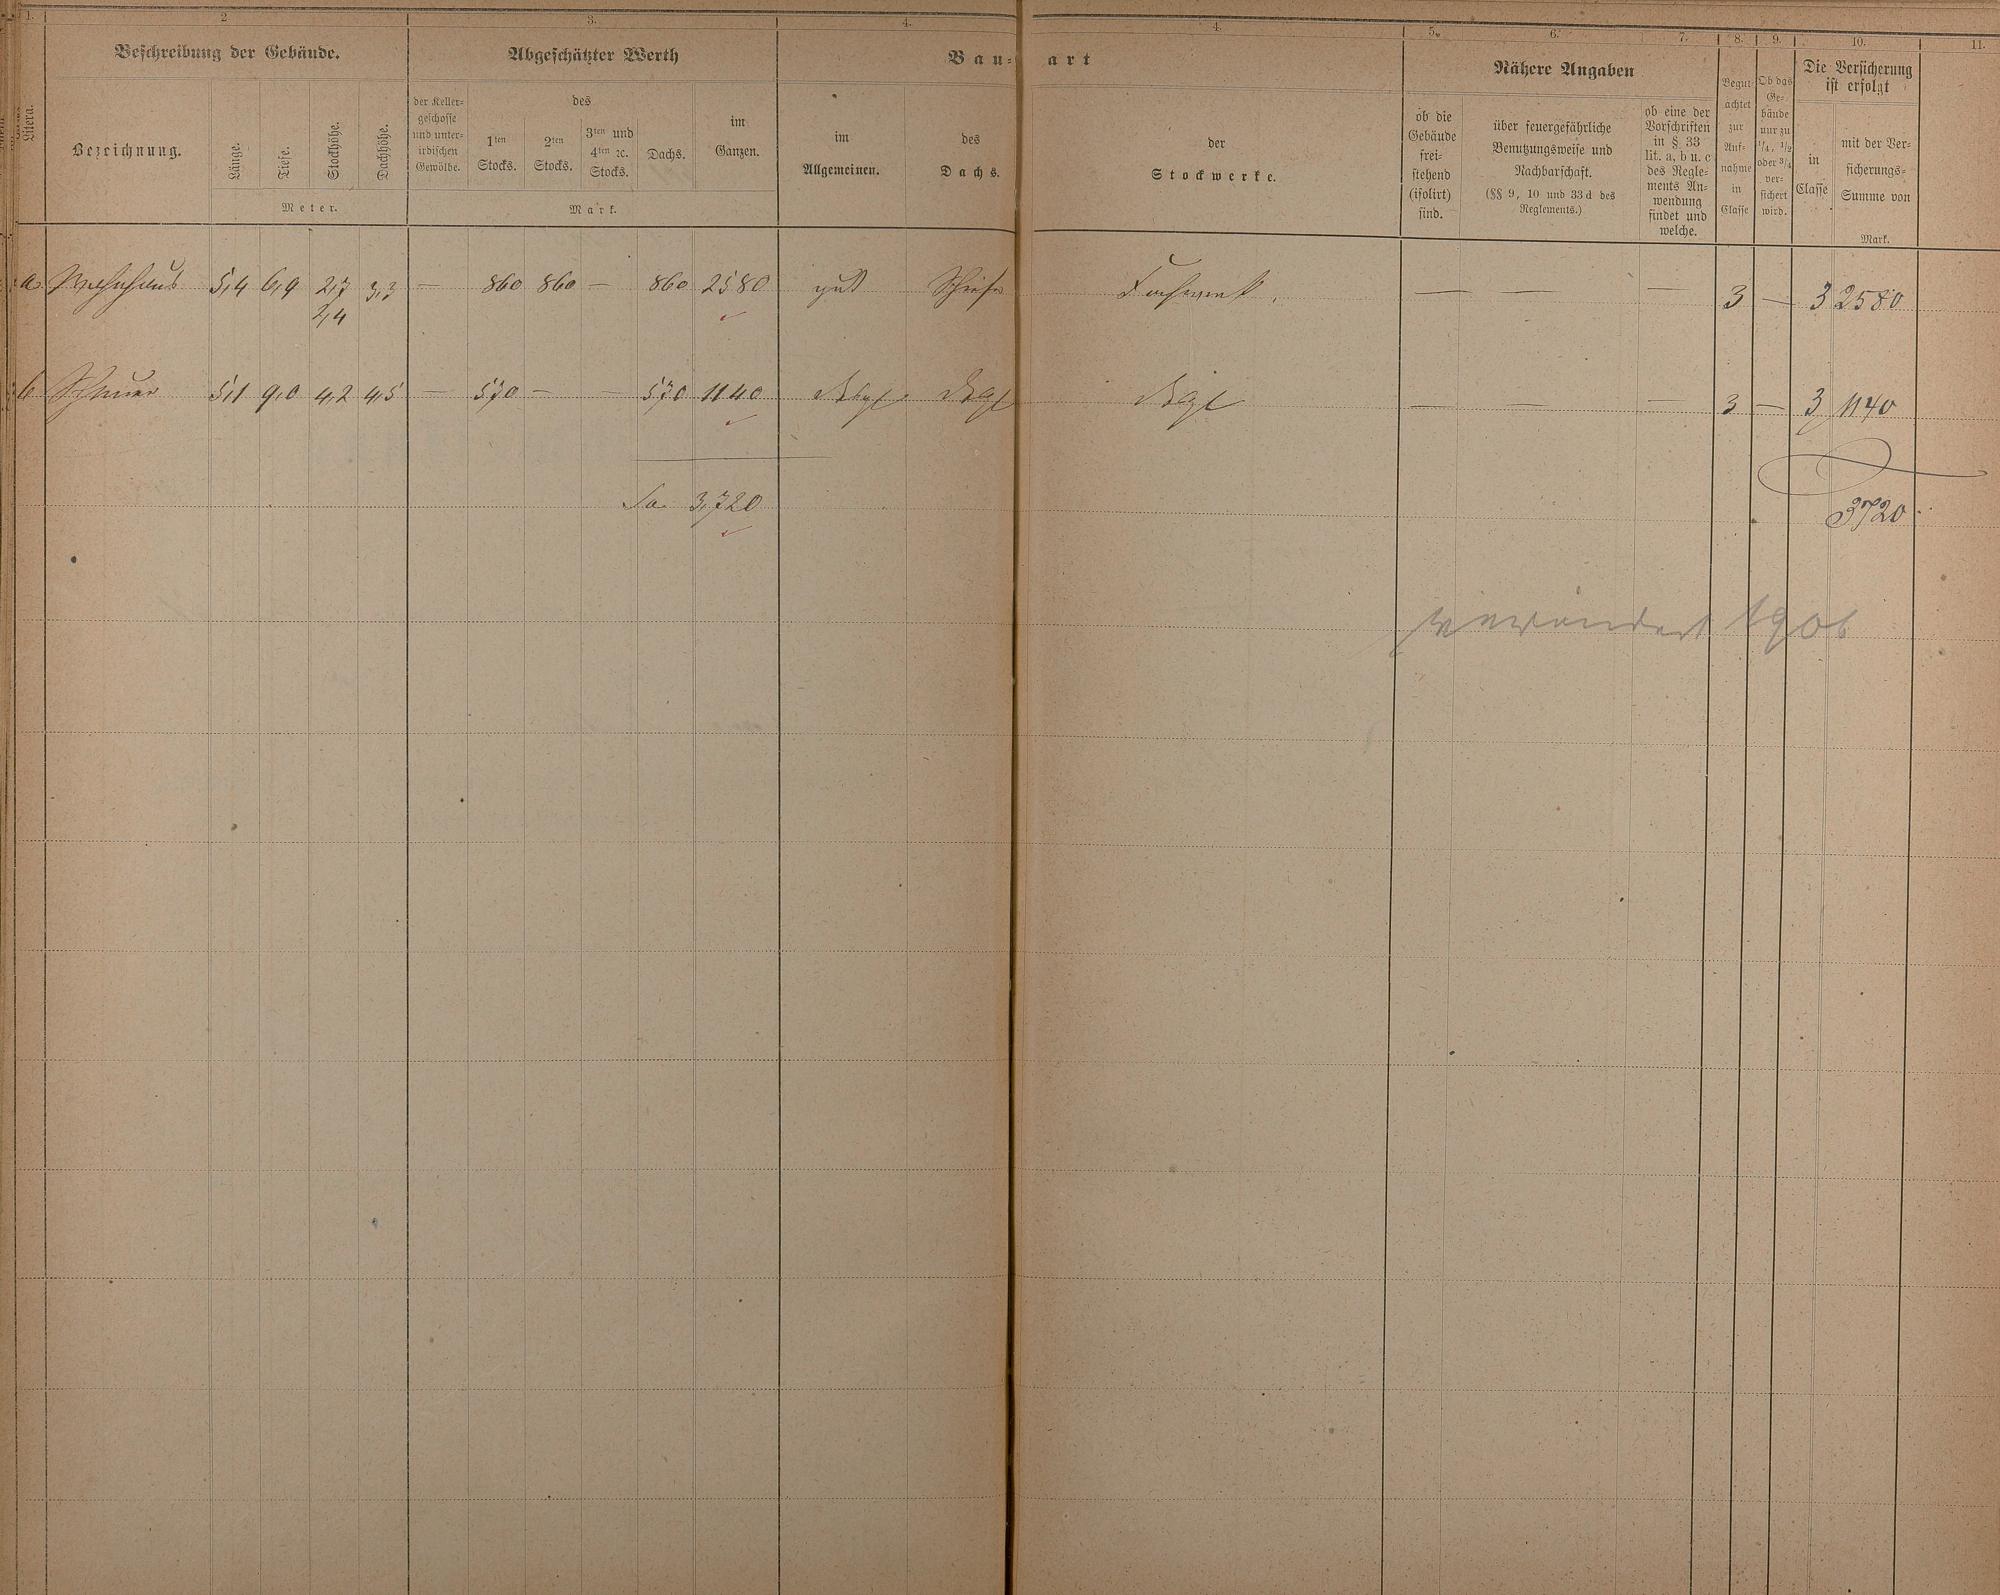 1. 2 3. 4. 4. 5. 6. 7. 8. 9. 10. 11.
Litera.
Beschreibung der Gebäude.
Bezeichnung.
Länge. Tiefe. Stockhöhe. Dachhöhe.
Meter.
Abgeschätzter Werth
der Keller-
geschosse
und unter-
irdischen
Gewölbe.
des
1ten
Stocks.
2ten
Stocks.
3ten und
4ten ꝛc.
Stocks.
Dachs.
im
Ganzen.
Mark.
Bau- art
im
Allgemeinen.
des
Dachs.
der
Stockwerke.
Nähere Angaben
ob die
Gebäude
frei-
stehend
(isolirt)
sind.
über feuergefährliche
Benutzungsweise und
Nachbarschaft.
(§§ 9, 10 und 33 d des
Reglements.)
ob eine der
Vorschriften
in § 33
lit. a, b u. c
des Regle-
ments An-
wendung
findet und
welche.
Begut-
achtet
zur
Auf-
nahme
in
Classe
Ob das
Ge-
bäude
nur zu
1/4, 1/2
oder 3/4
ver-
sichert
wird.
Die Versicherung
ist erfolgt
in
Classe
mit der Ver-
sicherungs-
Summe von
Mark.
a. Wohnhaus 5,4 6,9 2,7 3,3 — 860 860 — 860 2580 gut Schiefer Fachwerk. — — — 3 — 3 2580
2,4
b Scheuer 5,1 9,0 4,2 4,5 — 570 — — 570 1140 — — — 3 — 3 1140
Sa. 3,720 3720.
verändert 1906